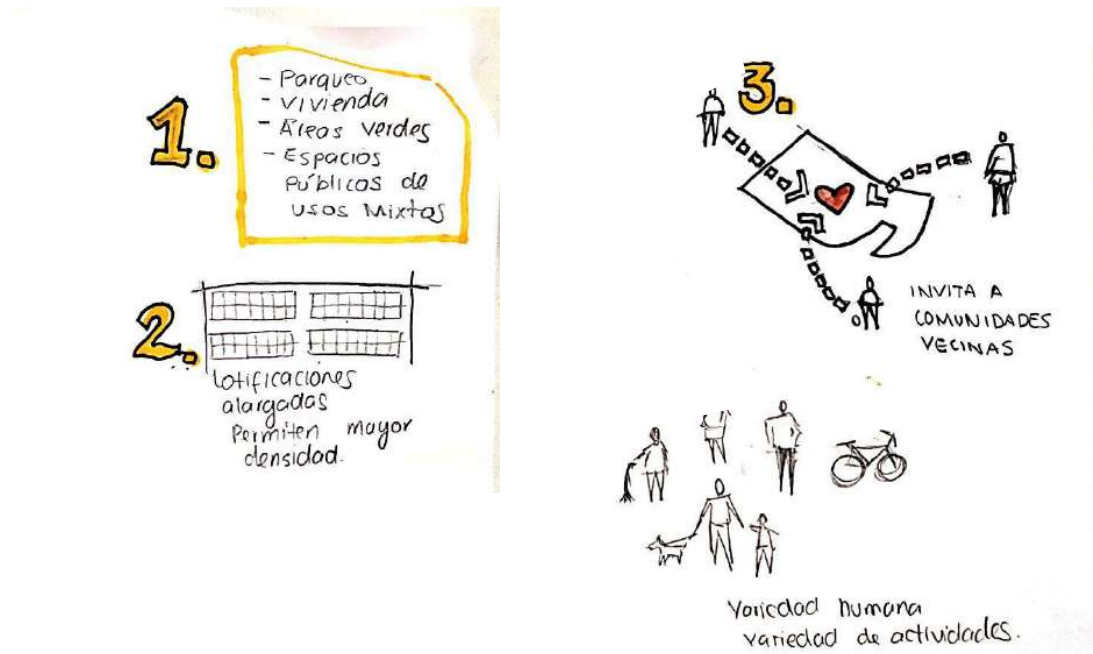 1.
- Parqueo
- Vivienda
- Áreas verdes
- Espacios
Públicos de
usos Mixtos
2.
Lotificaciones
alargadas
Permiten mayor
densidad.
3.
INVITA A
COMUNIDADES
VECINAS
Variedad humana
variedad de actividades.